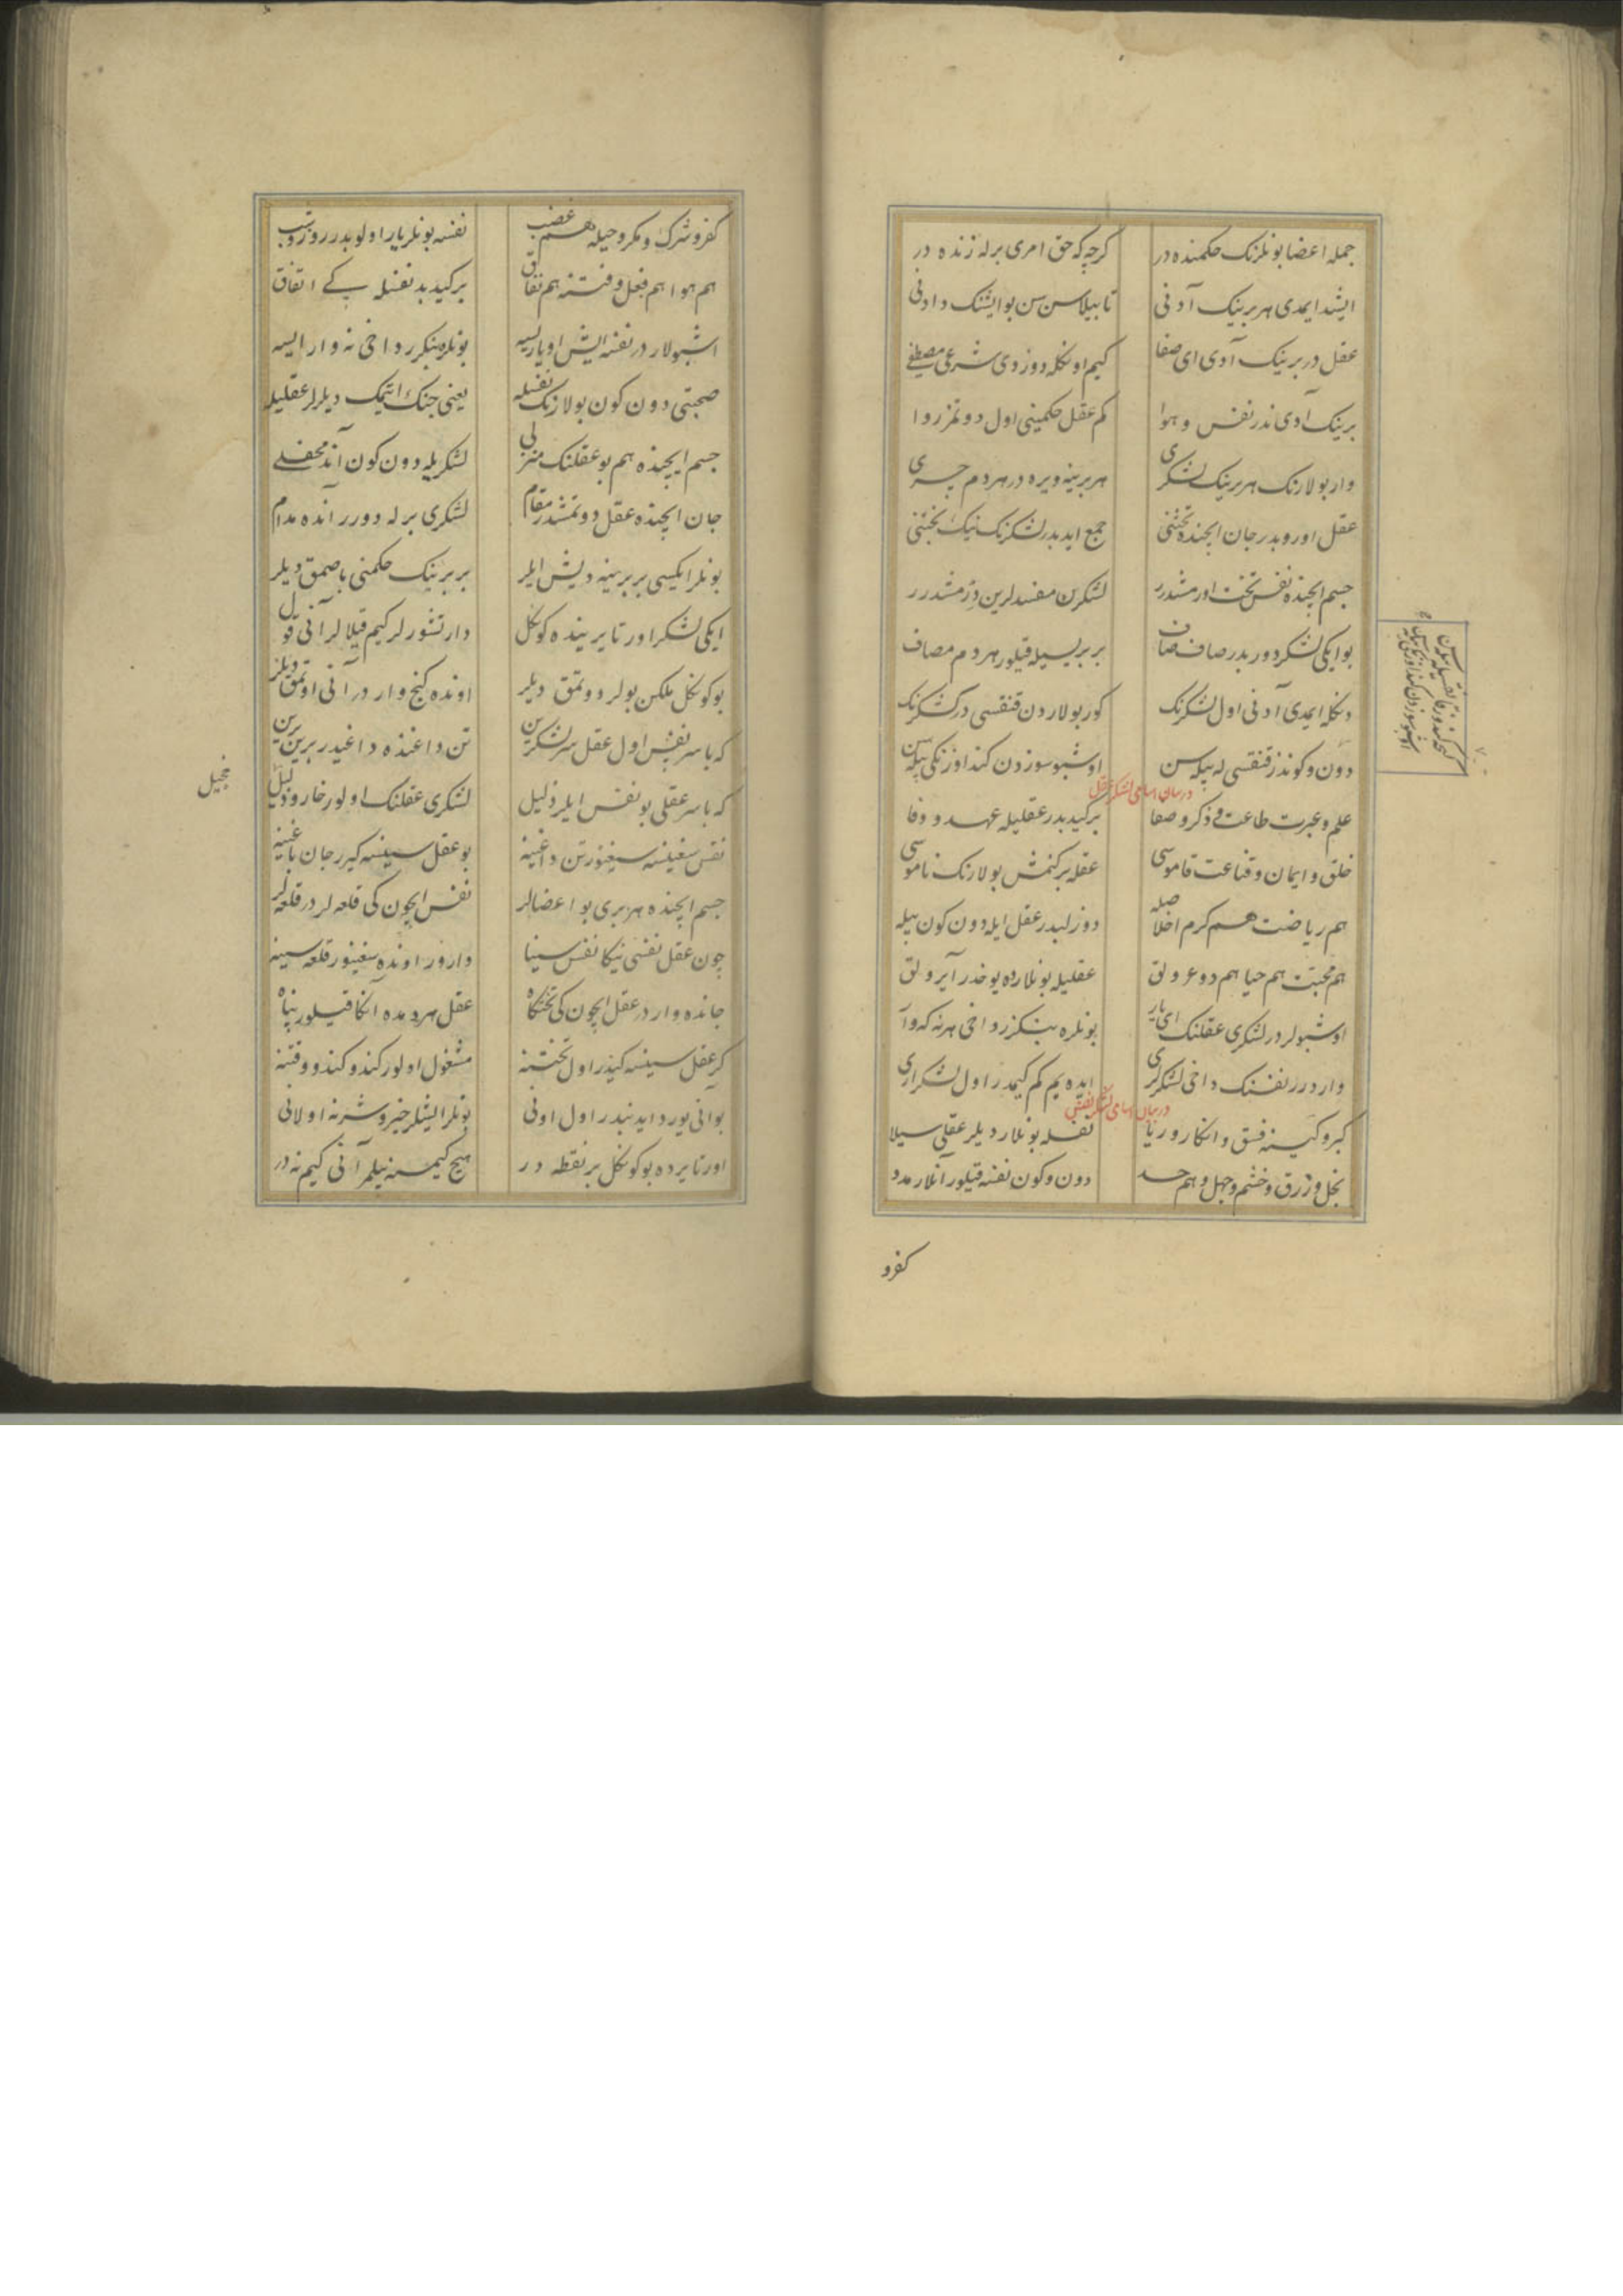 جمله اعضا بونلرنک حکمنده در کرچه که حق امری برله زنده در
ایشد ایمدی هر برینیک آدنی تا بیلاسن سن بو ایشنک دادنی
عقل در برینیک آدی ای صفا کیم اونکله دوزودی شرعی مصطفی
برینیک آدی ندر نفس و هوا کم عقل حکمینی اول دوتمز روا
وار بولارنک هر برینیک لشکری هر برینه ویره در هر دم چری
عقل اوروبدر جان ایچنده تختنی جمع ایدبدر لشکرنک نیک بختنی
جسم ایچنده نفس تخت اورمشدرر لشکرین مفسدلرین دزمشدرر
بو ایکی لشکر دوربدر صاف صاف بر بریسیله قیلور هر دم مصاف
دنکله ایمدی آدنی اول لشکرنک کور بولاردن قنقسی در لشکرنک
دون و کوندز قنقسی له بیله سن اوشبو سوزدن کنداوزنکی بیله سن
در بیان اسامی لشکر عقل
علم و عبرت طاعت و ذکر و صفا برکیدبدر عقلیله عهد و وفا
خلق و ایمان و قناعت قاموسی عقله برکنمش بولارنک ناموسی
هم ریاضت هم کرم اخلاصله دوزلبدر عقل ایله دون کون بیله
هم محبت هم حیا هم دوغرولق عقلیله بونلارده یوخدر آیرولق
اوشبولر در لشکری عقلنک ای یار بونلره بنکزر داخی هر نه که وار
وار درر نفسنک داخی لشکرلری ایده یم کم کیمدر اول لشکرلری
در بیان اسامی لشکر نفس
کبر و کینه فسق و انکار و ریا نفسله بونلار دیلر عقلی سیلا
بخل و زرق و خشم و جهل و هم حسد دون و کون نفسه قیلور آنلار مدد
کفرو
کفر و شرک و مکر و حیله هم غضب نفسه بونلر یار اولوبدر روز و شب
هم هوا هم فعل و فتنه هم نفاق برکیدبد نفسله پکے اتفاق
اشبولار در نفسه ایش او یاریسه بونلره بنکزر داخی نه وار ایسه
صحبتی دون کون بولارنک نفسله یعنی جنک اتیمک دیلرلر عقلیله
جسم ایچنده هم بو عقلنک منزلی لشکریله دون کون آنده محفلے
جان ایچنده عقل دوتمشدر مقام لشکری برله دورر آنده مدام
بونلر ایکیسی بر برینه دیش ایلر بر برینک حکمنی باصمق دیلر
ایکی لشکر اورتا یرینده کوکل دارتشورلر کیم قیلالر آنی قول
بو کوکل ملکن بولر دوتمق دیلر اونده کنج وار در آنی اوتمق دیلر
که باسر نفس اول عقل سر لشکرین تن داغنده داغیدر بر برین
که باسر عقلی بو نفس ایلر ذلیل لشکری عقلنک اولور خار و ذلیل
نفس سیغینسه سیغنور تن داغینه بو عقل سیغینسه کیرر جان باغینه
جسم ایچنده هر بری بو اعضالر نفس ایچون کی قلعه لر در قلعه لر
چون عقل نفسی نیکا نفس سینا دارور اونده سیغینور قلعه سینه
جانده وار در عقل ایچون کی تختکاه عقل هر دمده آنکا قیلور پناه
کر عقل سینسه کیدر اول تختینه مشغول اولور کندو کندو وقتینه
بو آنی یورد ایدنبدر اول اونی بونلر ایشلر خیر و شر نه اولانی
اورتا یرده بو کوکل بر نقطه در هیچ کیمسه نیلمز آنی کیم نه در